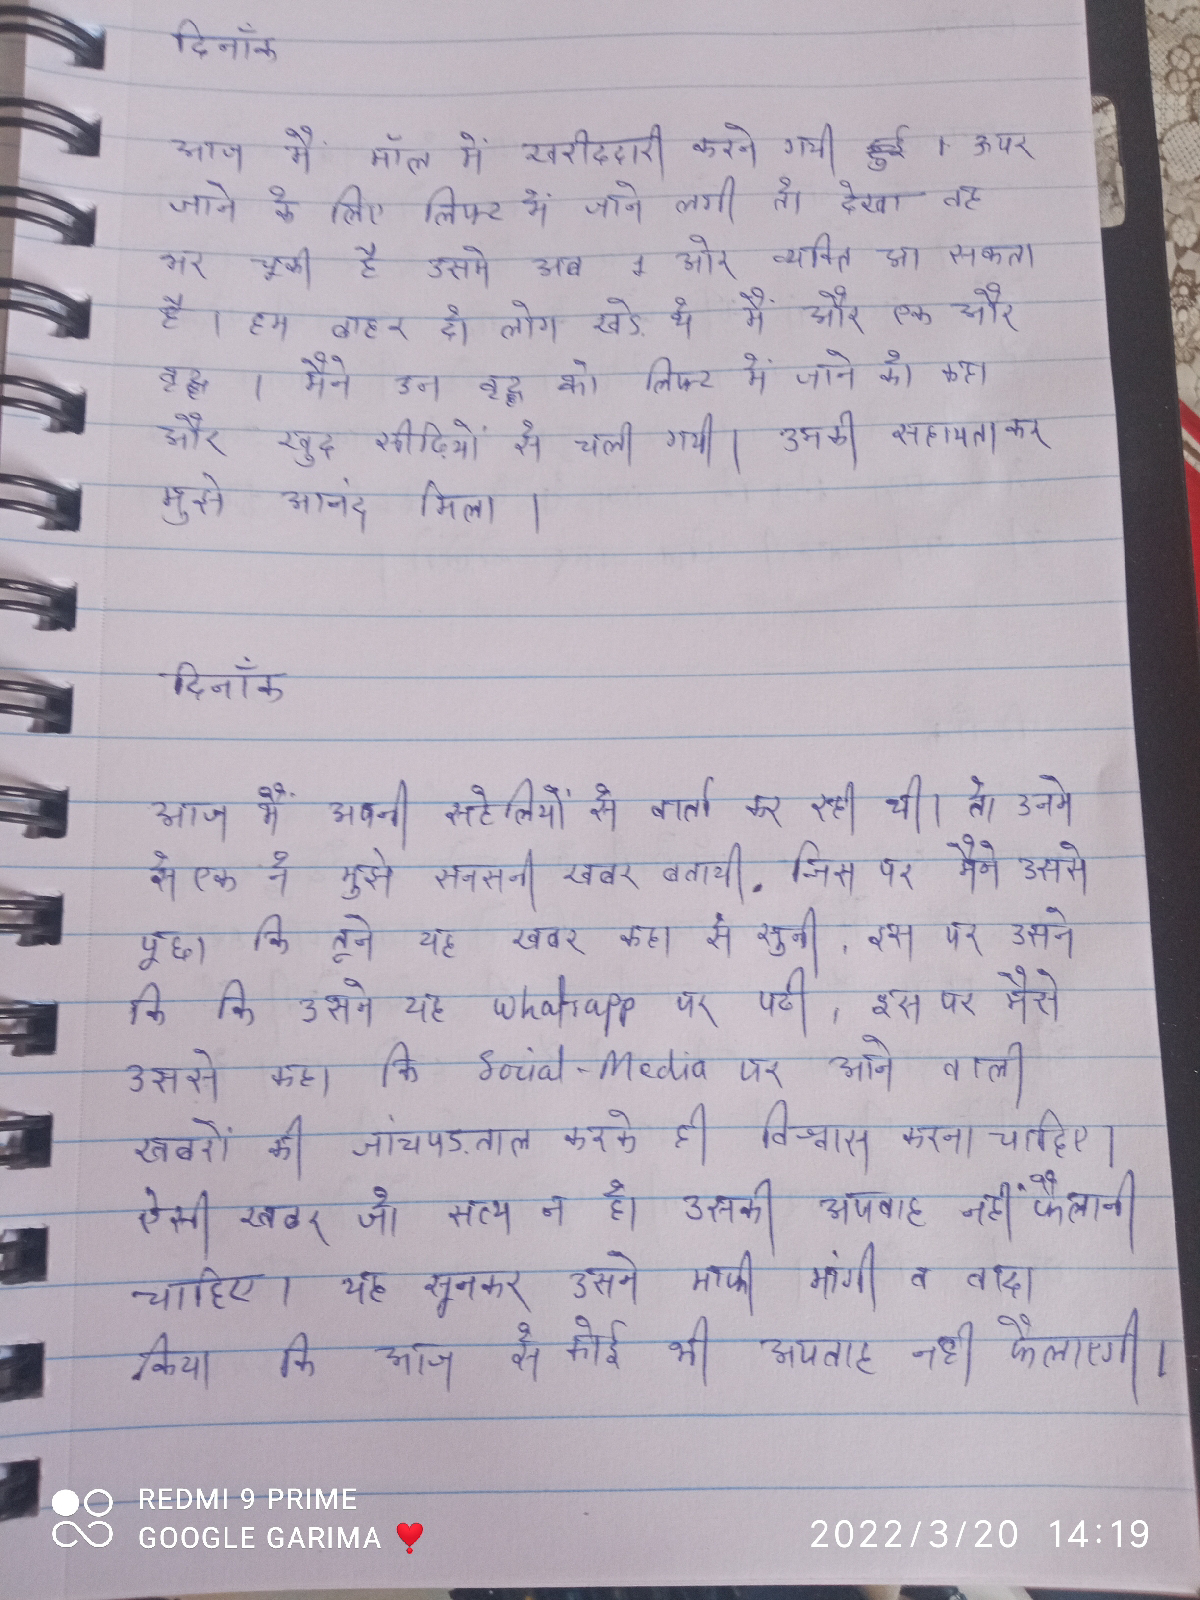 दिनाँक
आज मैं मॉल में खरीददारी करने गयी हुई । ऊपर
जाने के लिए लिफ्ट में जाने लगी तो देखा वह
भर चूकी है उसमे अब 1 ओर व्यक्ति आ सकता
है । हम बाहर दो लोग खडे़ थे मैं और एक और
वृद्ध । मैंने उन वृद्ध को लिफ्ट में जाने को कहा
और खुद सीढियों से चली गयी। उनकी सहायता कर
मुझे आनंद मिला ।
दिनाँक
आज मैं अपनी सहेलियों से वार्ता कर रही थी। तो उनमे
से एक ने मुझे सनसनी खबर बतायी. जिस पर मैंने उससे
पूछा कि तूने यह खबर कहा से सुनी, इस पर उसने
कि कि उसने यह Whatsapp पर पढी, इस पर मैंसे
उससे कहा कि Social-Media पर आने वाली
खबरों की जांचपड़ताल करके ही विश्वास करना चाहिए।
ऐसी खबर जो सत्य न हो उसकी अपवाह नहीं फैलानी
चाहिए। यह सूनकर उसने माफी मांगी व वादा
किया कि आज से कोई भी अपवाह नही फैलाएगी।
REDMI 9 PRIME
GOOGLE GARIMA ❤️
2022/3/20 14:19